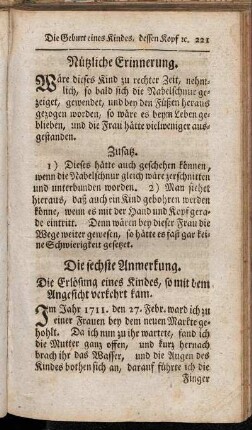 Die Geburt eines Kindes, dessen Kopf ꝛc. 221
Nützliche Erinnerung.
Wäre dieses Kind zu rechter Zeit, nehm-
lich, so bald sich die Nabelschnur ge-
zeiget, gewendet, und bey den Füssen heraus
gezogen worden, so wäre es beym Leben ge-
blieben, und die Frau hätte vielweniger aus-
gestanden.
Zusatz.
1) Dieses hätte auch geschehen können,
wenn die Nabelschnur gleich wäre zerschnitten
und unterbunden worden. 2) Man siehet
hieraus, daß auch ein Kind gebohren werden
könne, wenn es mit der Hand und Kopf gera-
de eintritt. Denn wären bey dieser Frau die
Wege weiter gewesen, so hätte es fast gar kei-
ne Schwierigkeit gesetzet.
Die sechste Anmerkung.
Die Erlösung eines Kindes, so mit dem
Angesicht verkehrt kam.
Im Jahr 1711. den 27. Febr. ward ich zu
einer Frauen bey dem neuen Markte ge-
hohlt. Da ich nun zu ihr wartete, fand ich
die Mutter ganz offen, und kurz hernach
brach ihr das Wasser, und die Augen des
Kindes bothen sich an, darauf führte ich die
Finger